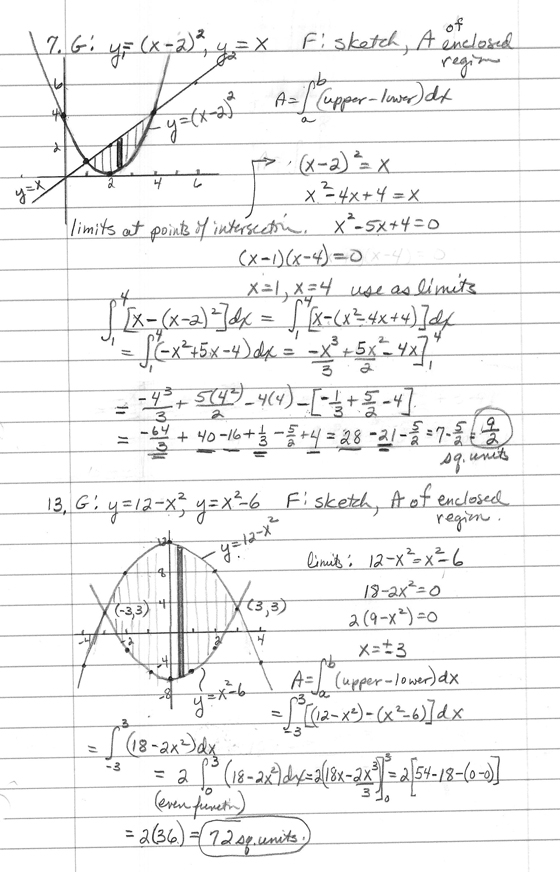 7. G: y₁=(x-2)², y₂=x F: sketch, A of enclosed region
6
4
2
2 4 6
y=(x-2)²
y=x
A=∫ₐᵇ(upper-lower)dx
limits at points of intersection.
(x-2)²=x
x²-4x+4=x
x²-5x+4=0
(x-1)(x-4)=0
x=1, x=4 use as limits
∫₁⁴[x-(x-2)²]dx = ∫₁⁴[x-(x²-4x+4)]dx
= ∫₁⁴(-x²+5x-4)dx = -x³/3+5x²/2-4x]₁⁴
= -4³/3 + 5(4²)/2 - 4(4) - [-1/3+5/2-4]
= -64/3 + 40-16+1/3-5/2+4 = 28-21-5/2=7-5/2=9/2
sq. units
13. G: y=12-x², y=x²-6 F: sketch, A of enclosed region.
12
8
4
-4 -2 2 4
-4
-8
y=12-x²
(-3,3) (3,3)
y=x²-6
limits: 12-x²=x²-6
18-2x²=0
2(9-x²)=0
x=±3
A=∫ₐᵇ(upper-lower)dx
=∫₋₃³[(12-x²)-(x²-6)]dx
=∫₋₃³(18-2x²)dx
= 2∫₀³(18-2x²)dx=2(18x-2x³/3]₀³=2[54-18-(0-0)]
(even functn)
=2(36)=72 sq. units.